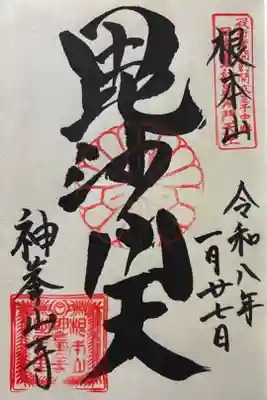 根本山
毘沙門天
神峯山寺
令和八年
一月廿七日